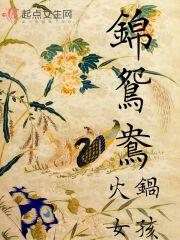 起点女生网
錦鴛鴦
火鍋
女孩